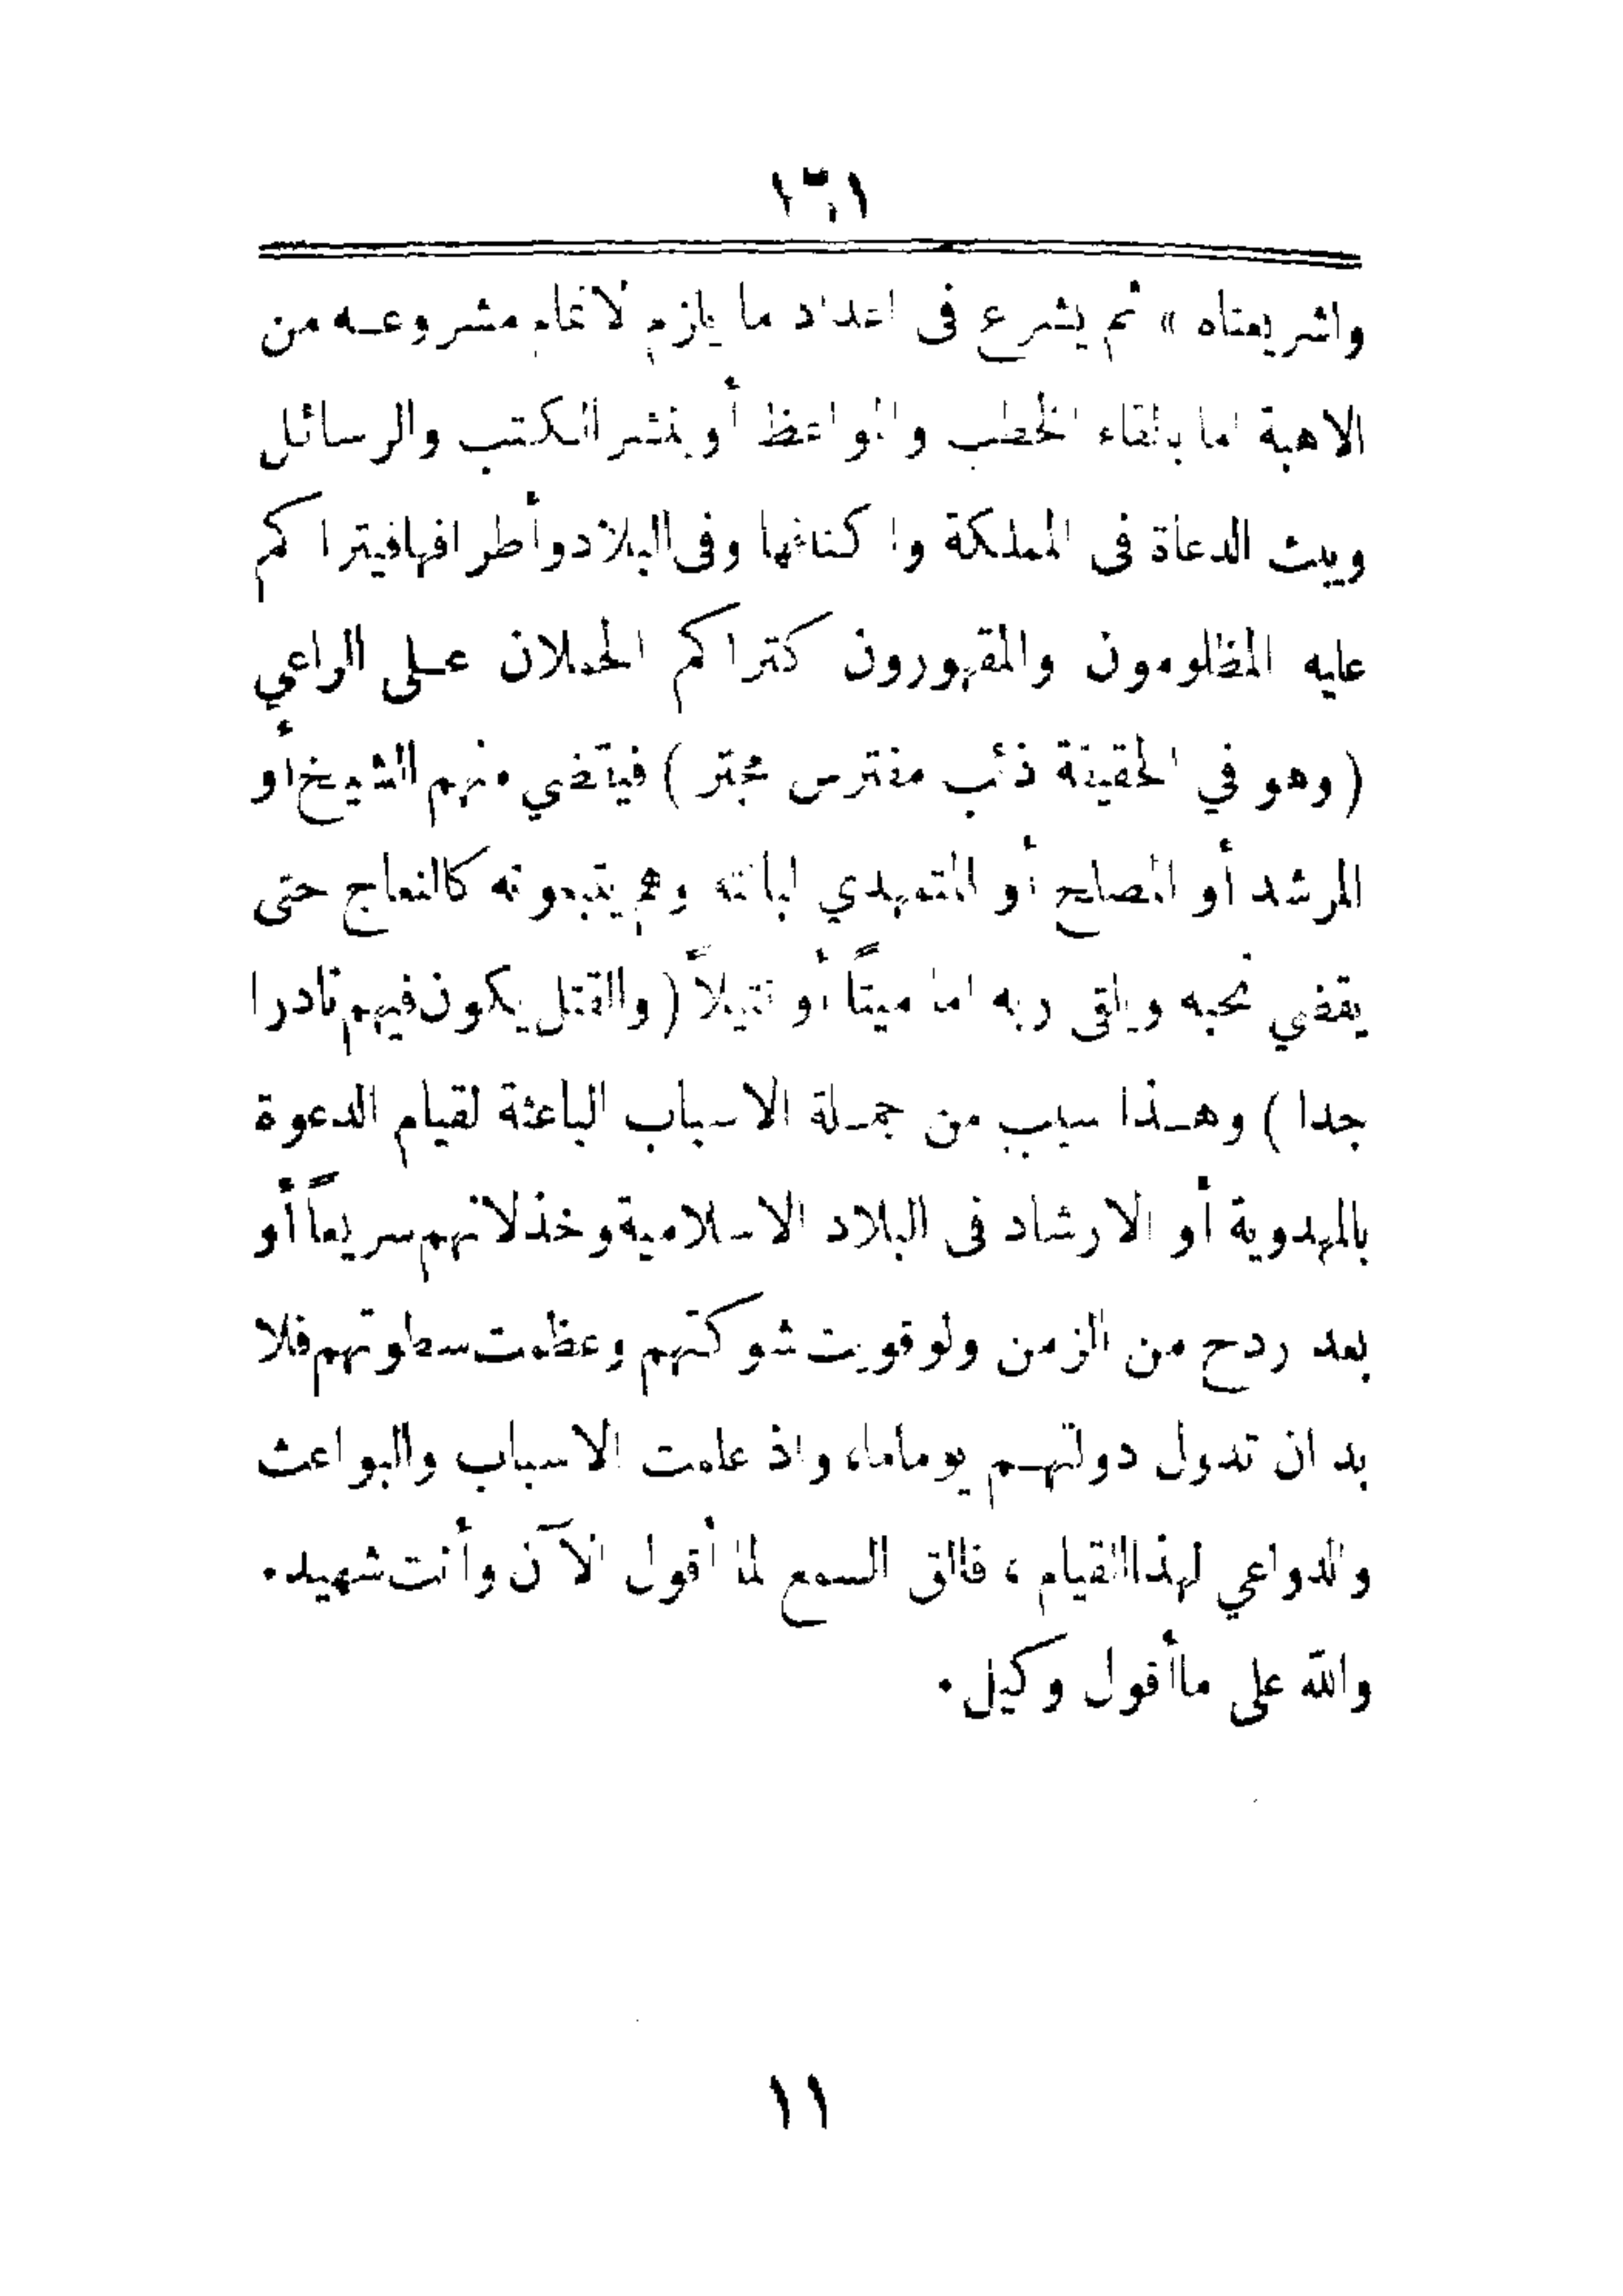 ١٦١
واشريعتاه » ثم يشرع فى اعداد ما يلزم لاتمام مشروعه من
الاهبة اما بالقاء الخطب والمواعظ أو بنشر الكتب والرسائل
وببث الدعاة فى المملكة واكنافها وفى البلاد وأطرافها فيتراكم
عليه المظلومون والمقهورون كتراكم الحملان على الراعي
( وهو في الحقيقة ذئب مفترس مجتر ) فيقضي منهم الشيخ أو
المرشد أو المصلح أو المتمهدي لبانته وهم يتبعونه كالنعاج حتى
يقضي نحبه ويلقى ربه اما ميتاً أو قتيلاً ( والقتل يكون فيهم نادرا
جدا ) وهذا سبب من جملة الاسباب الباعثة لقيام الدعوة
بالمهدوية أو الارشاد فى البلاد الاسلامية وخذلانهم سريعاً أو
بعد ردح من الزمن ولو قويت شوكتهم وعظمت سطوتهم فلا
بد ان تدول دولتهم يوما ما، واذ علمت الاسباب والبواعث
والدواعي لهذا القيام ، فالق السمع لما أقول الآن وأنت شهيد.
والله على ما أقول وكيل.
١١